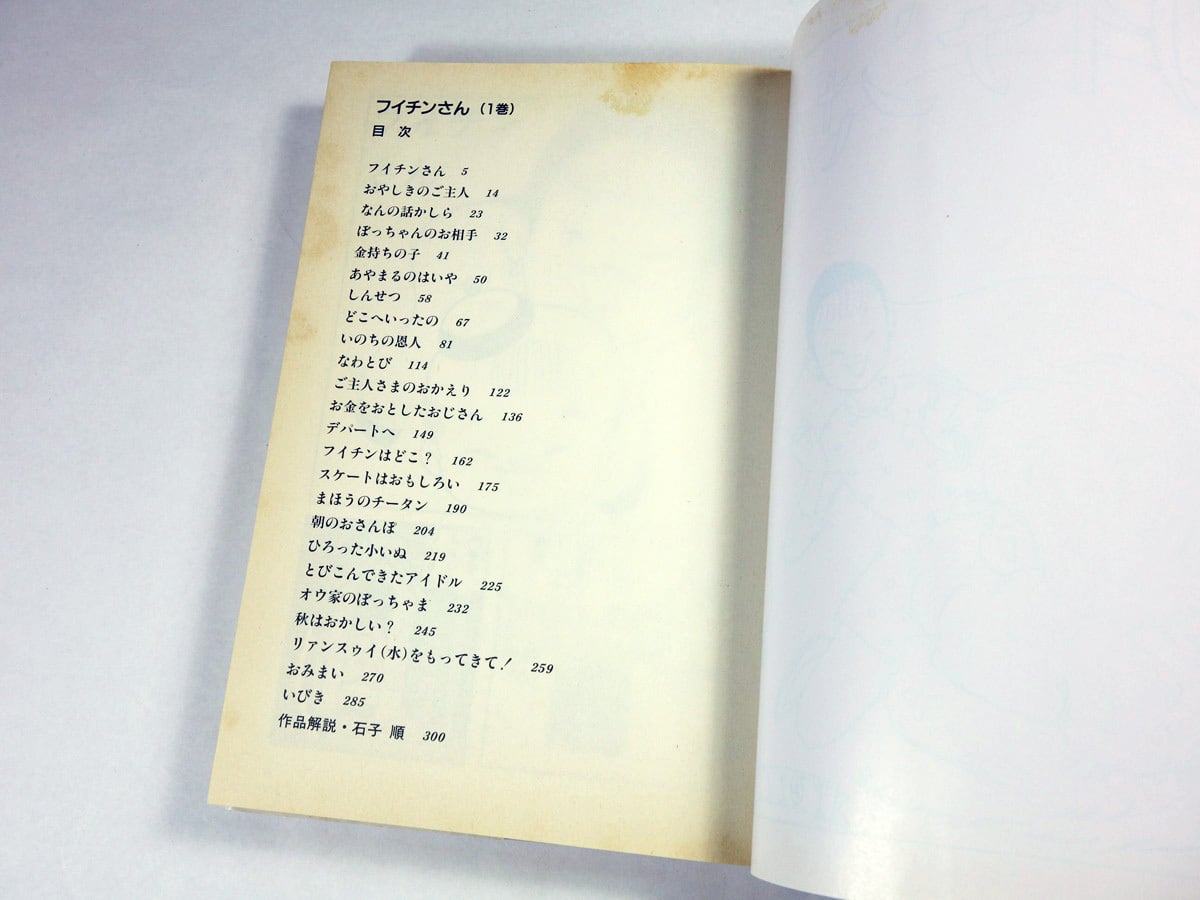 フイチンさん（1巻）
目 次
フイチンさん 5
おやしきのご主人 14
なんの話かしら 23
ぼっちゃんのお相手 32
金持ちの子 41
あやまるのはいや 50
しんせつ 58
どこへいったの 67
いのちの恩人 81
なわとび 114
ご主人さまのおかえり 122
お金をおとしたおじさん 136
デパートへ 149
フイチンはどこ？ 162
スケートはおもしろい 175
まほうのチータン 190
朝のおさんぽ 204
ひろった小いぬ 219
とびこんできたアイドル 225
オウ家のぼっちゃま 232
秋はおかしい？ 245
リァンスゥイ(水)をもってきて！ 259
おみまい 270
いびき 285
作品解説・石子 順 300